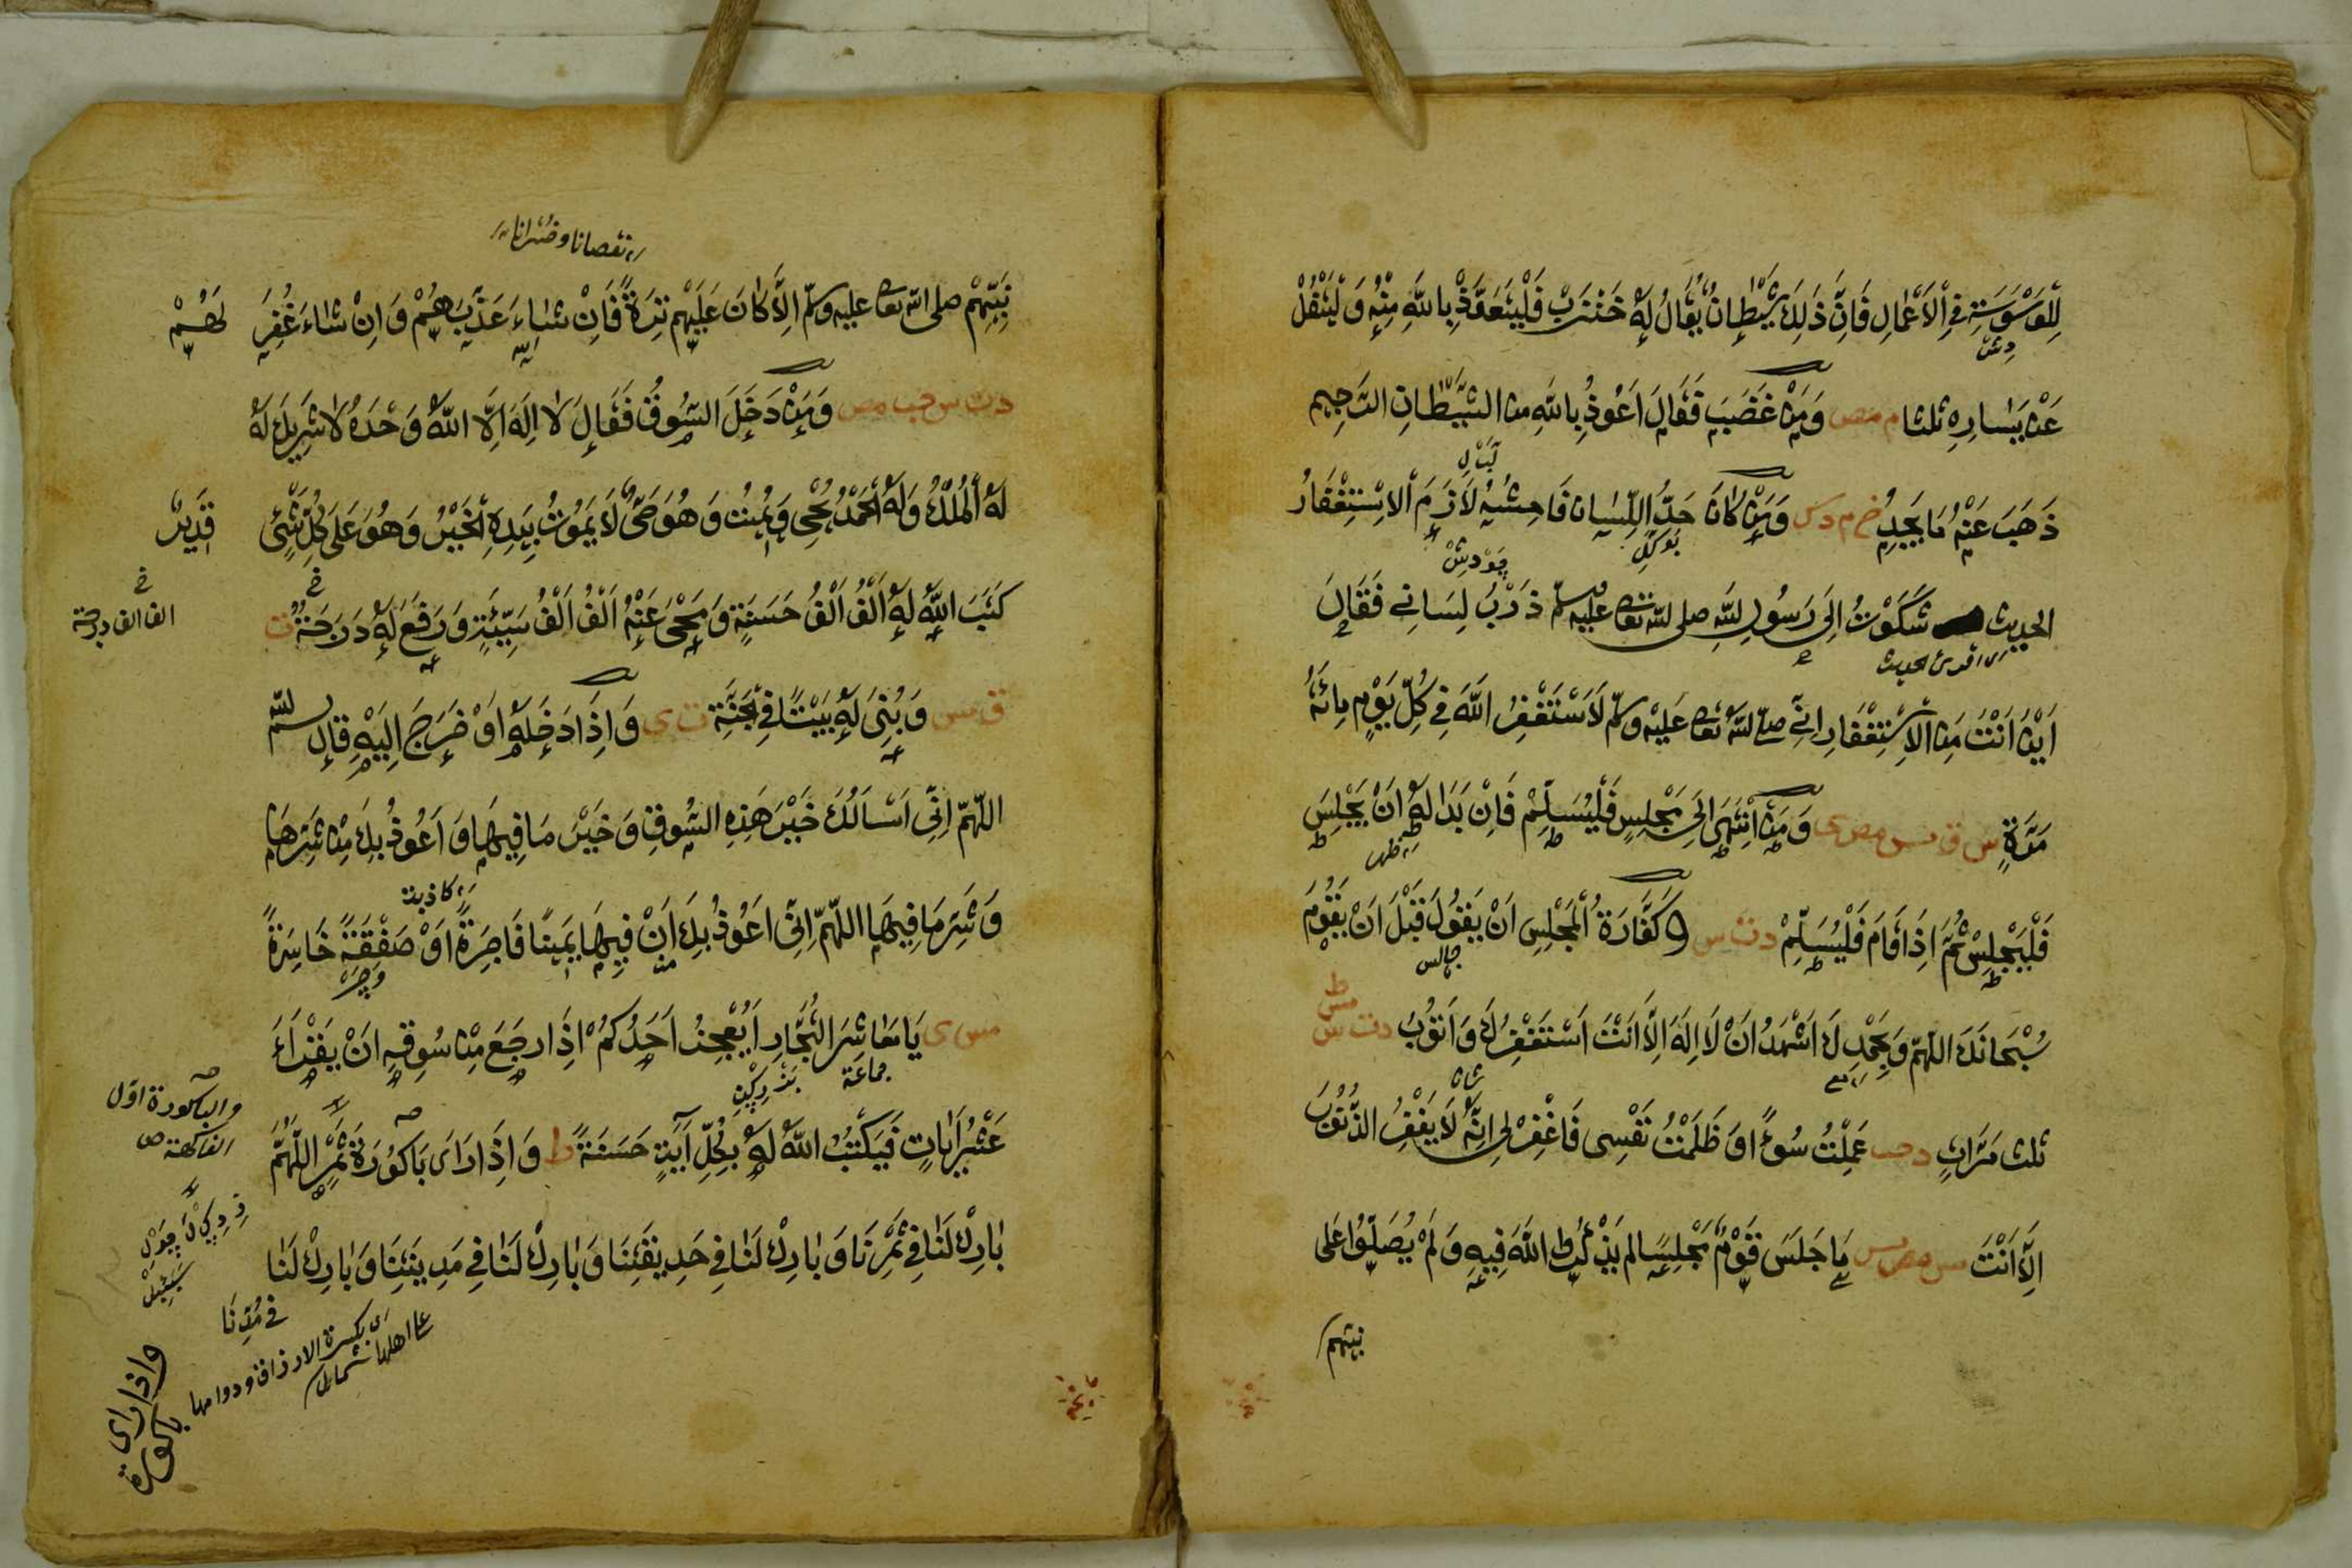 لِلْوَسْوَسَةِ فِي الْاَعْمَالِ فَاِنَّ ذَلِكَ شَيْطَانٌ يُقَالُ لَهُ خَنْزَبْ فَلْيَتَعَوَّذْ بِاللّٰهِ مِنْهُ وَلْيَتْفُلْ
عَنْ يَسَارِهِ ثلثا م مص وَمَنْ غَضَبَ فَقَالَ اَعُوذُ بِاللّٰهِ من الشَّيْطَانِ الرَّجِيم
ذَهَبَ عَنْهُ مَا يَجِدُ خ م د س وَمَنْ كَانَ حَدَّ اللِّسَانِ فَاحِشَهُ لَازَمَ الْاِسْتِغْفَارُ
الحديث شَكَوْتُ اِلَى رَسُولِ اللّٰهِ صلى اللّٰه تعا عليه وسلم ذَرْبَ لِسَانِي فَقَالَ
اى اقرئ الحديث
اَيْنَ اَنْتَ مِنَ الْاِسْتِغْفَارِ اِنِّي صلى اللّٰه تعا عَلَيْهِ وسلّم لَاَسْتَغْفِرُ اللّٰهَ فِي كُلِّ يَوْمٍ مِائَةَ
مَرَّةٍ س ق مس مص ى وَمَنْ اَنْتَهَى اِلَى مَجْلِسٍ فَلْيُسَلِّمْ فَاِنْ بَدَا لَهُ اَنْ يَجْلِسَ
فَلْيَجْلِسْ ثُمَّ اِذَا قَامَ فَلْيُسَلِّمْ د ت س وَ كَفَّارَةُ الْمَجْلِسِ اَنْ يَقُولَ قَبْلَ اَنْ يَقُومَ
جالس
سُبْحَانَكَ اللّٰهُمَّ وَبِحَمْدِكَ اَشْهَدُ اَنْ لَا اِلَهَ اِلَّا اَنْتَ اَسْتَغْفِرُكَ وَاَتُوبُ د ت س
مس ط
ثلث مَرَّاتٍ د حب عَمِلْتُ سُوءً اوَ ظَلَمْتُ نَفْسِى فَاغْفِرْ لِى اِنَّهُ لَا يَغْفِرُ الذُّنُوبَ
اِلَّا اَنْتَ س مص مس مَا جَلَسَ قَوْمٌ مَجْلِسًا لم يَذْكُرُوا اللّٰهَ فِيهِ وَلَمْ يُصَلُّوا عَلَى
نبيّهم
نقصانا وخسرانا
نَبِيِّهِمْ صلى اللّٰه تعا عليه وسلّم اِلَّا كَانَ عَلَيْهِمْ تِرَةً فَاِنْ شَاءَ عَذَّبَهُمْ وَاِنْ شَاءَ غُفِرَ لَهُمْ
د ت س حب مص وَمَنْ دَخَلَ السُّوقُ فَقَالَ لَا اِلَهَ اِلَّا اللّٰهُ وَحْدَهُ لَا شَرِيكَ لَهُ
لَهُ الْمُلْكُ وَلَهُ الْحَمْدُ يُحْيِى وَيُمِيتُ وَهُوَ حَىٌّ لَا يَمُوتُ بِيَدِهِ الْخَيْرُ وَهُوَ عَلَى كُلِّ شَيْئٍ قَدِيرٌ
كَتَبَ اللّٰهُ لَهُ اَلْفُ اَلْفُ حَسَنَةٍ وَمَحْىَ عَنْهُ اَلْفُ اَلْفُ سَيِّئَةٍ وَرَفَعَ لَهُ دَرَجَةٌ ت
الف الف درجة
ق مس وَبُنِىَ لَهُ بَيْتًا فِى الْجَنَّةِ ت ى وَاِذَا دَخَلَهُ اوْ خَرَجَ اِلَيْهِ قال بسم اللّٰه
اللّٰهُمّ اِنِّى اَسْاَلُكَ خَيْرَ هَذِهِ السُّوقِ وَخَيْرَ مَا فِيهَا وَاَعُوذُ بِكَ مِنْ شَرِّهَا
وَشَرِّ مَا فِيهَا اللّٰهُمّ اِنِّى اَعُوذُ بِكَ اَنْ فِيهَا يَمِينًا فَاجِرَةً اوْ صَفْقَةً خَاسِرَةً
كاذبة
مس ى يَا مَعَاشِرَ التُّجَّارِ اَيُعْجِزُ اَحَدُكُمْ اِذَا رَجَعَ مِنْ سُوقِهِ اَنْ يَقْرَاءَ
جماعة
عَشْرَ اَيَاتٍ فَيَكْتُبُ اللّٰهُ لَهُ بِكُلِّ اَيَةٍ حَسَنَةً ط وَاِذَا رَاَى بَاكُورَةَ ثَمَرٍ اللّٰهُمَّ
والباكورة اوّل
الفاكهة ص
بَارِكْ لَنَا فِى ثَمَرِنَا وَبَارِكْ لَنَا فِى حَدِيقَتِنَا وَبَارِكْ لَنَا فِى مَدِينَتِنَا وَبَارِكْ لَنَا
فى مُدِّنَا
اى بكسرة الارزاق ودوامها
على اهلها
واذا راى
باكورة